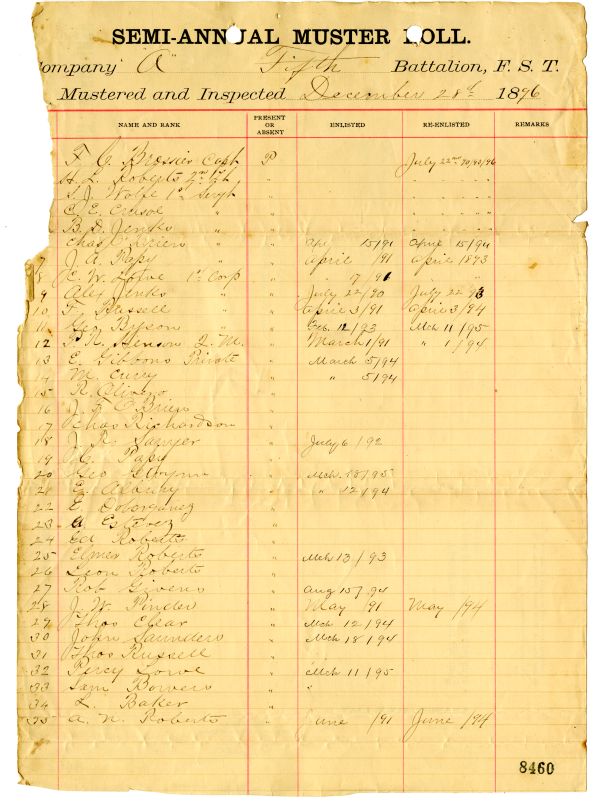 SEMI-ANNUAL MUSTER ROLL.
Company "A" Fifth Battalion, F. S. T.
Mustered and Inspected December 28th 1896
NAME AND RANK PRESENT OR ABSENT ENLISTED RE-ENLISTED REMARKS
F. C. Brossier Capt P July 22nd
H. L. Roberts 2nd Lt "
S. J. Wolfe 1st Sergt "
C. E. Crusoe " "
B. D. Jenks " "
Chas " " Apl 15/91 April 15/94
7 J. A. Papy " " April /91 April 1893
8 C. W. Lowe 1st Corp "
9 Alex Jenks " " July 22/90 July 22 93
10 F. Russell " " April 3/91 April 3/94
11 Geo Bryson " " Oct. 12/93 Mch 11/95
12 P. R. Henson Q. M. " March 1/91 " 1/94
13 E. Gibbons Private " March 5/94
14 M. Curry " " 5/94
15 R. Olivero "
16 J. F. O'Brien "
17 Chas Richardson "
18 J. R. Sawyer " July 6/92
19 C. Papy "
20 Geo Gwynn " Mch 18/95
21 E. Albury " " 12/94
22 E. "
23 A Estevez "
24 Ed Roberts "
25 Elmer Roberts " Mch 13/93
26 Leon Roberts "
27 Rob Givens " Aug 15/94
28 J. W. Pinder " May /91 May /94
29 Thos Clear " Mch 12/94
30 John Saunders " Mch 18/94
31 Thos Russell "
32 Percy Lowe " Mch 11/95
33 Sam Bowers " "
34 L. Baker "
35 A. N. Roberts " June /91 June /94
8460